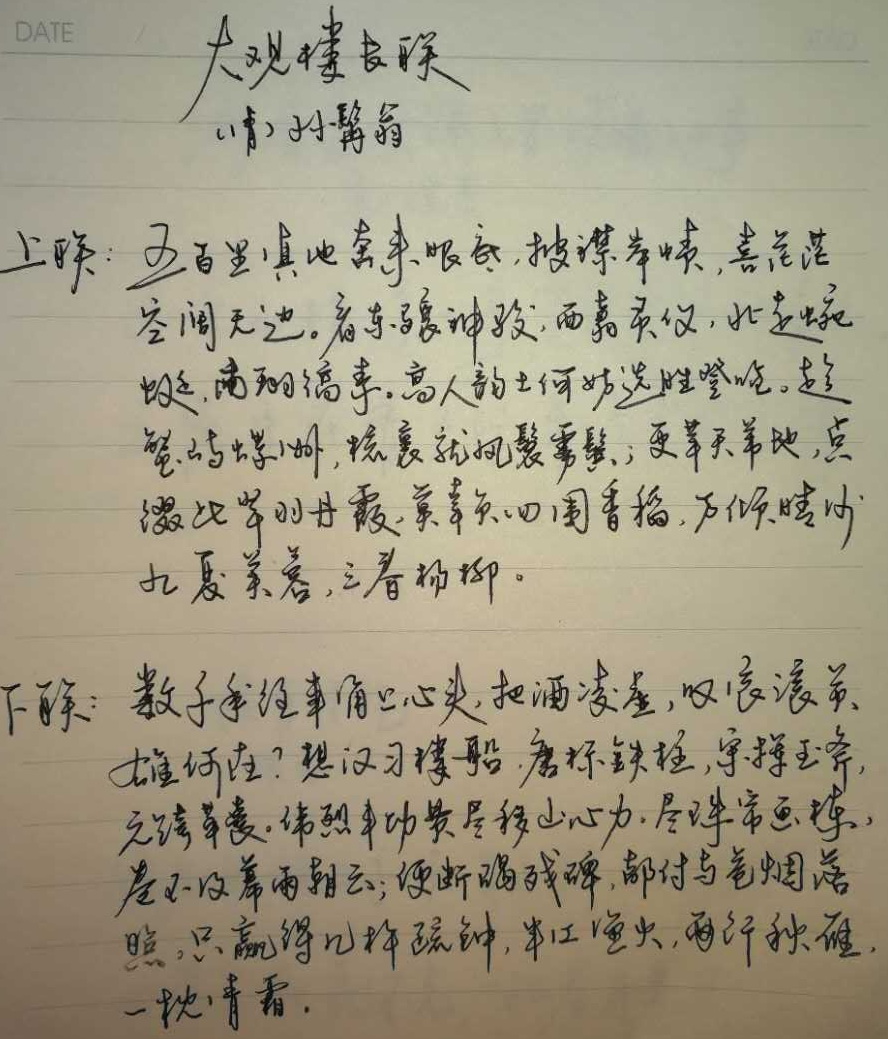 DATE /
大观楼长联
(清)孙髯翁
上联:五百里滇池奔来眼底,披襟岸帻,喜茫茫
空阔无边。看东骧神骏,西翥灵仪,北走蜿
蜒,南翔缟素。高人韵士何妨选胜登临。趁
蟹屿螺洲,梳裹就风鬟雾鬓;更苹天苇地,点
缀些翠羽丹霞,莫辜负四围香稻,万顷晴沙
九夏芙蓉,三春杨柳。
下联:数千年往事涌上心头,把酒凌虚,叹滚滚英
雄何在?想汉习楼船,唐标铁柱,宋挥玉斧,
元跨革囊。伟烈丰功费尽移山心力。尽珠帘画栋,
卷不及暮雨朝云;便断碣残碑,都付与苍烟落
照。只赢得几杵疏钟,半江渔火,两行秋雁,
一枕清霜。